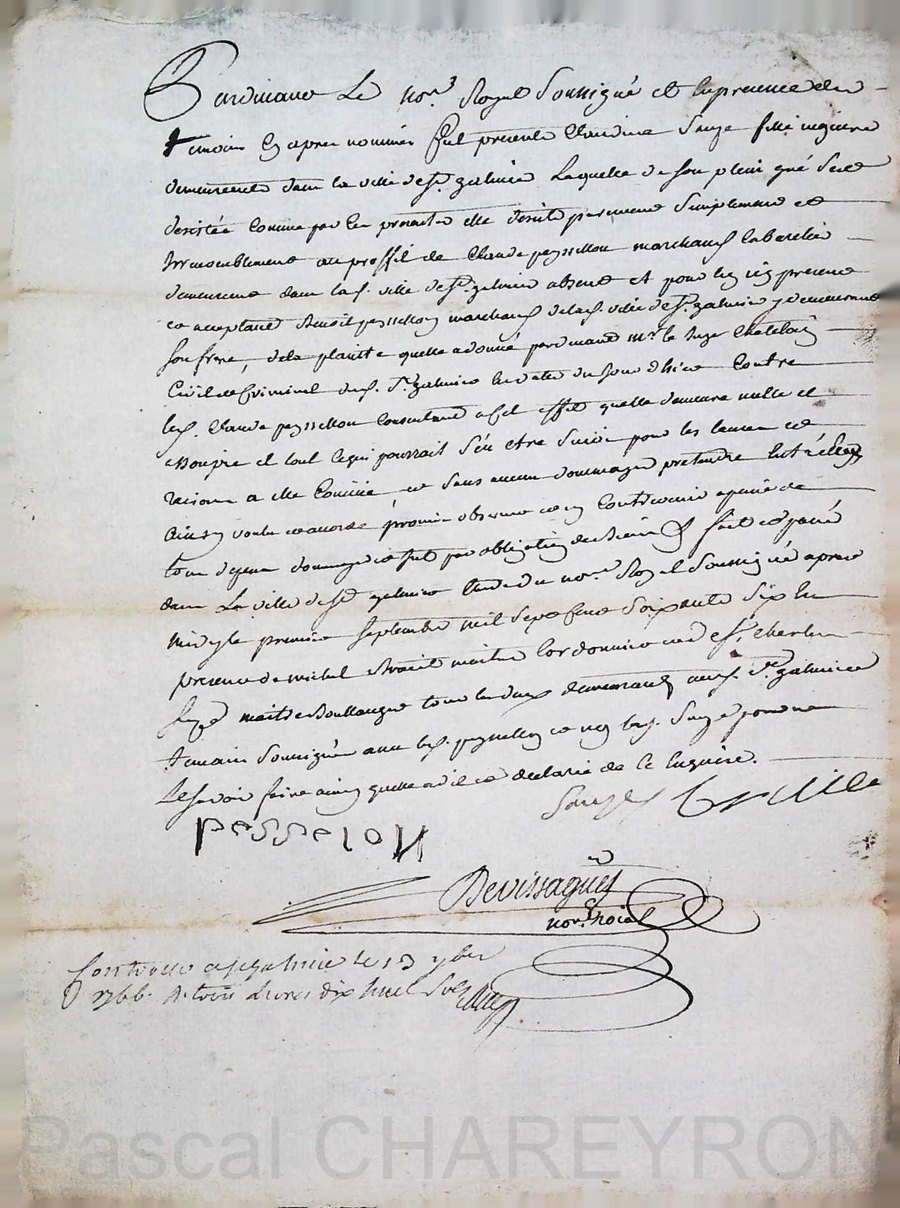 Pardevant Le nore Royal Soussigné et En presence des
temoins En apres nommés fut presente Claudine Sauze fille
demeurante dans la ville de St galmier Laquelle de son plein gré s'est
desistée comme par Ces presentes elle desiste purement Simplement et
Irrevocablement au proffit de Claude peysselloy marchand Cabaretier
demeurant dans lad. ville de St galmier absent et pour luy icy present
et acceptant Benoit peysselloy marchand de lad. ville de St galmier y demeurant
son frere, de la plainte quelle a donné pardevant Mr le Juge Chatelain
Civil et Criminel dud. St galmier En datte du Jour d'hier Contre
led. Claude peysselloy Consentant a cet effet quelle demeure nulle et
et tout ce qui pourrait s'en etre Suivi pour les causes et
raisons a elle Connües et sans aucun dommages pretendre
Ainsy voulu et accordé promis observer et ny Contrevenir a peine de
tous depens dommages et fait par obligation de biens fait et passé
dans La ville de St galmier Etude du nore Royal Soussigné apres
midy le premier Septembre mil Sept Cent Soixante Six En
presence de michel maitre Cordonnier et de sr Charles
maitre Boullanger tous les deux demeurants aud. St galmier
temoins Soussignés avec led. peysselloy et non lad. Sauze pour ne
Le savoir faire ainsy quelle a dit et declaré de Ce Enquise.
pesseloy
Devissaguet
nore roial
Controllé a St galmier le 13 7bre
1766. R. trois livres dix huit sols
Pascal CHAREYRON